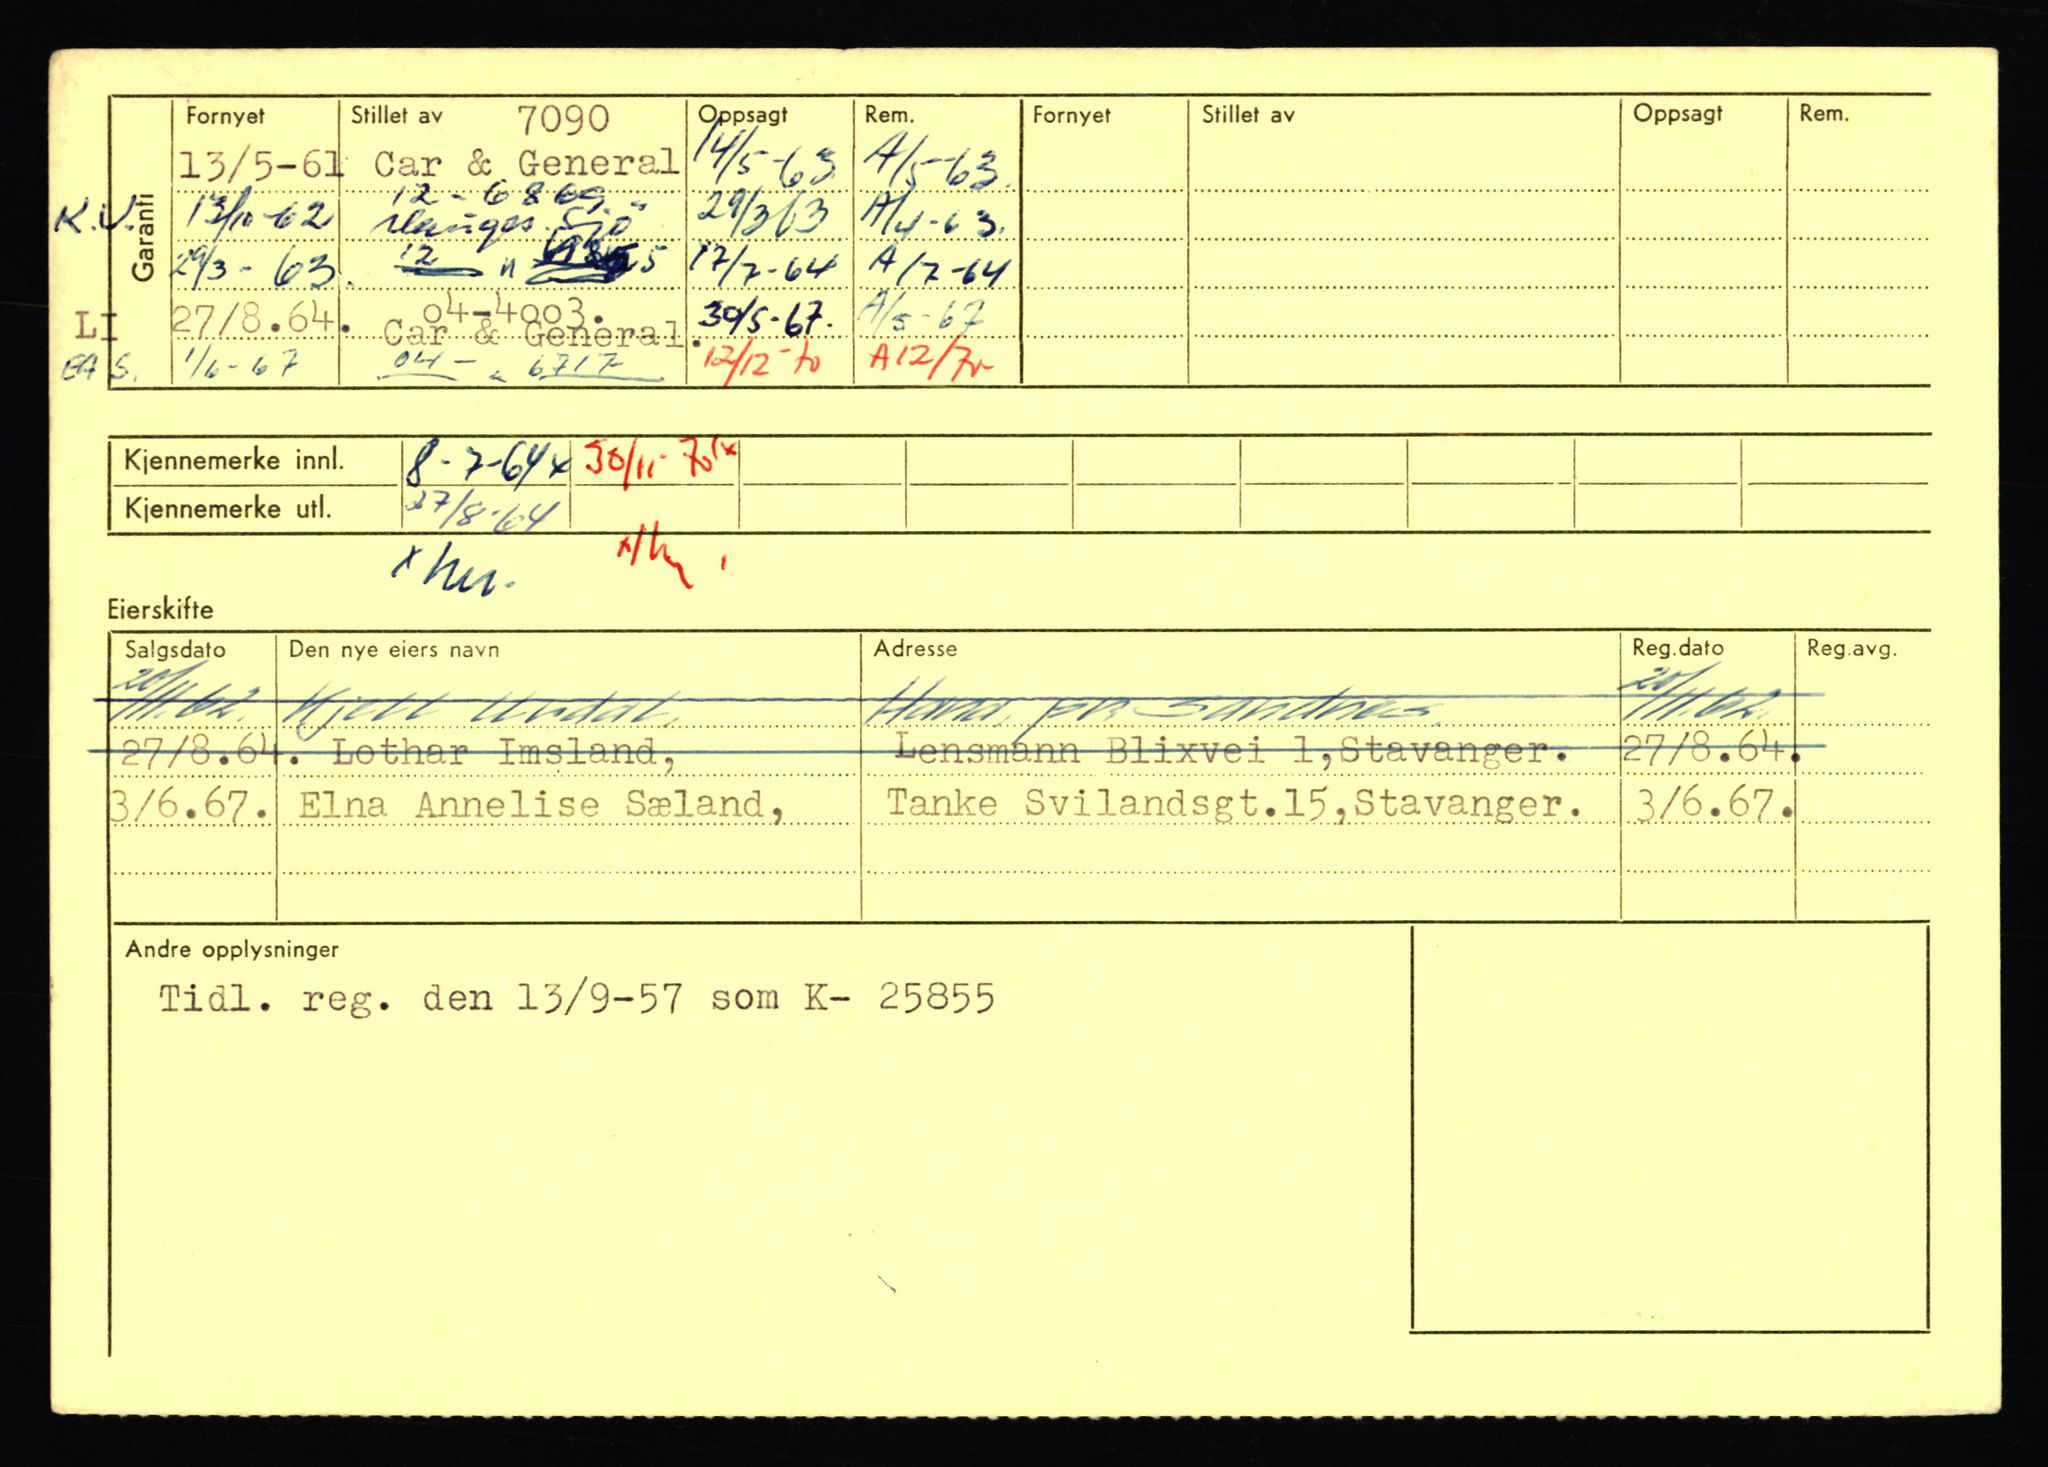 Garanti
Fornyet Stillet av 7090 Oppsagt Rem. Fornyet Stillet av Oppsagt Rem.
13/5-61 Car & General 14/5-63 A/5-63.
12-6869
K.V. 13/10-62 Sjø 29/3 63 A/4-63.
29/3-63. 12 " 17/7-64 A/7-64
04-4003.
LI 27/8.64. Car & General. 30/5-67. A/5-67
1/6-67 04- " 6717 12/12-70 A12/70
Kjennemerke innl. 8-7-64x 30/11-70
Kjennemerke utl. 27/8-64
Eierskifte
Salgsdato Den nye eiers navn Adresse Reg.dato Reg.avg.
20/11.62. Kjell Undal. Hana. pr. Sandnes. 20/11.62.
27/8.64. Lothar Imsland, Lensmann Blixvei 1,Stavanger. 27/8.64.
3/6.67. Elna Annelise Sæland, Tanke Svilandsgt.15,Stavanger. 3/6.67.
Andre opplysninger
Tidl. reg. den 13/9-57 som K- 25855